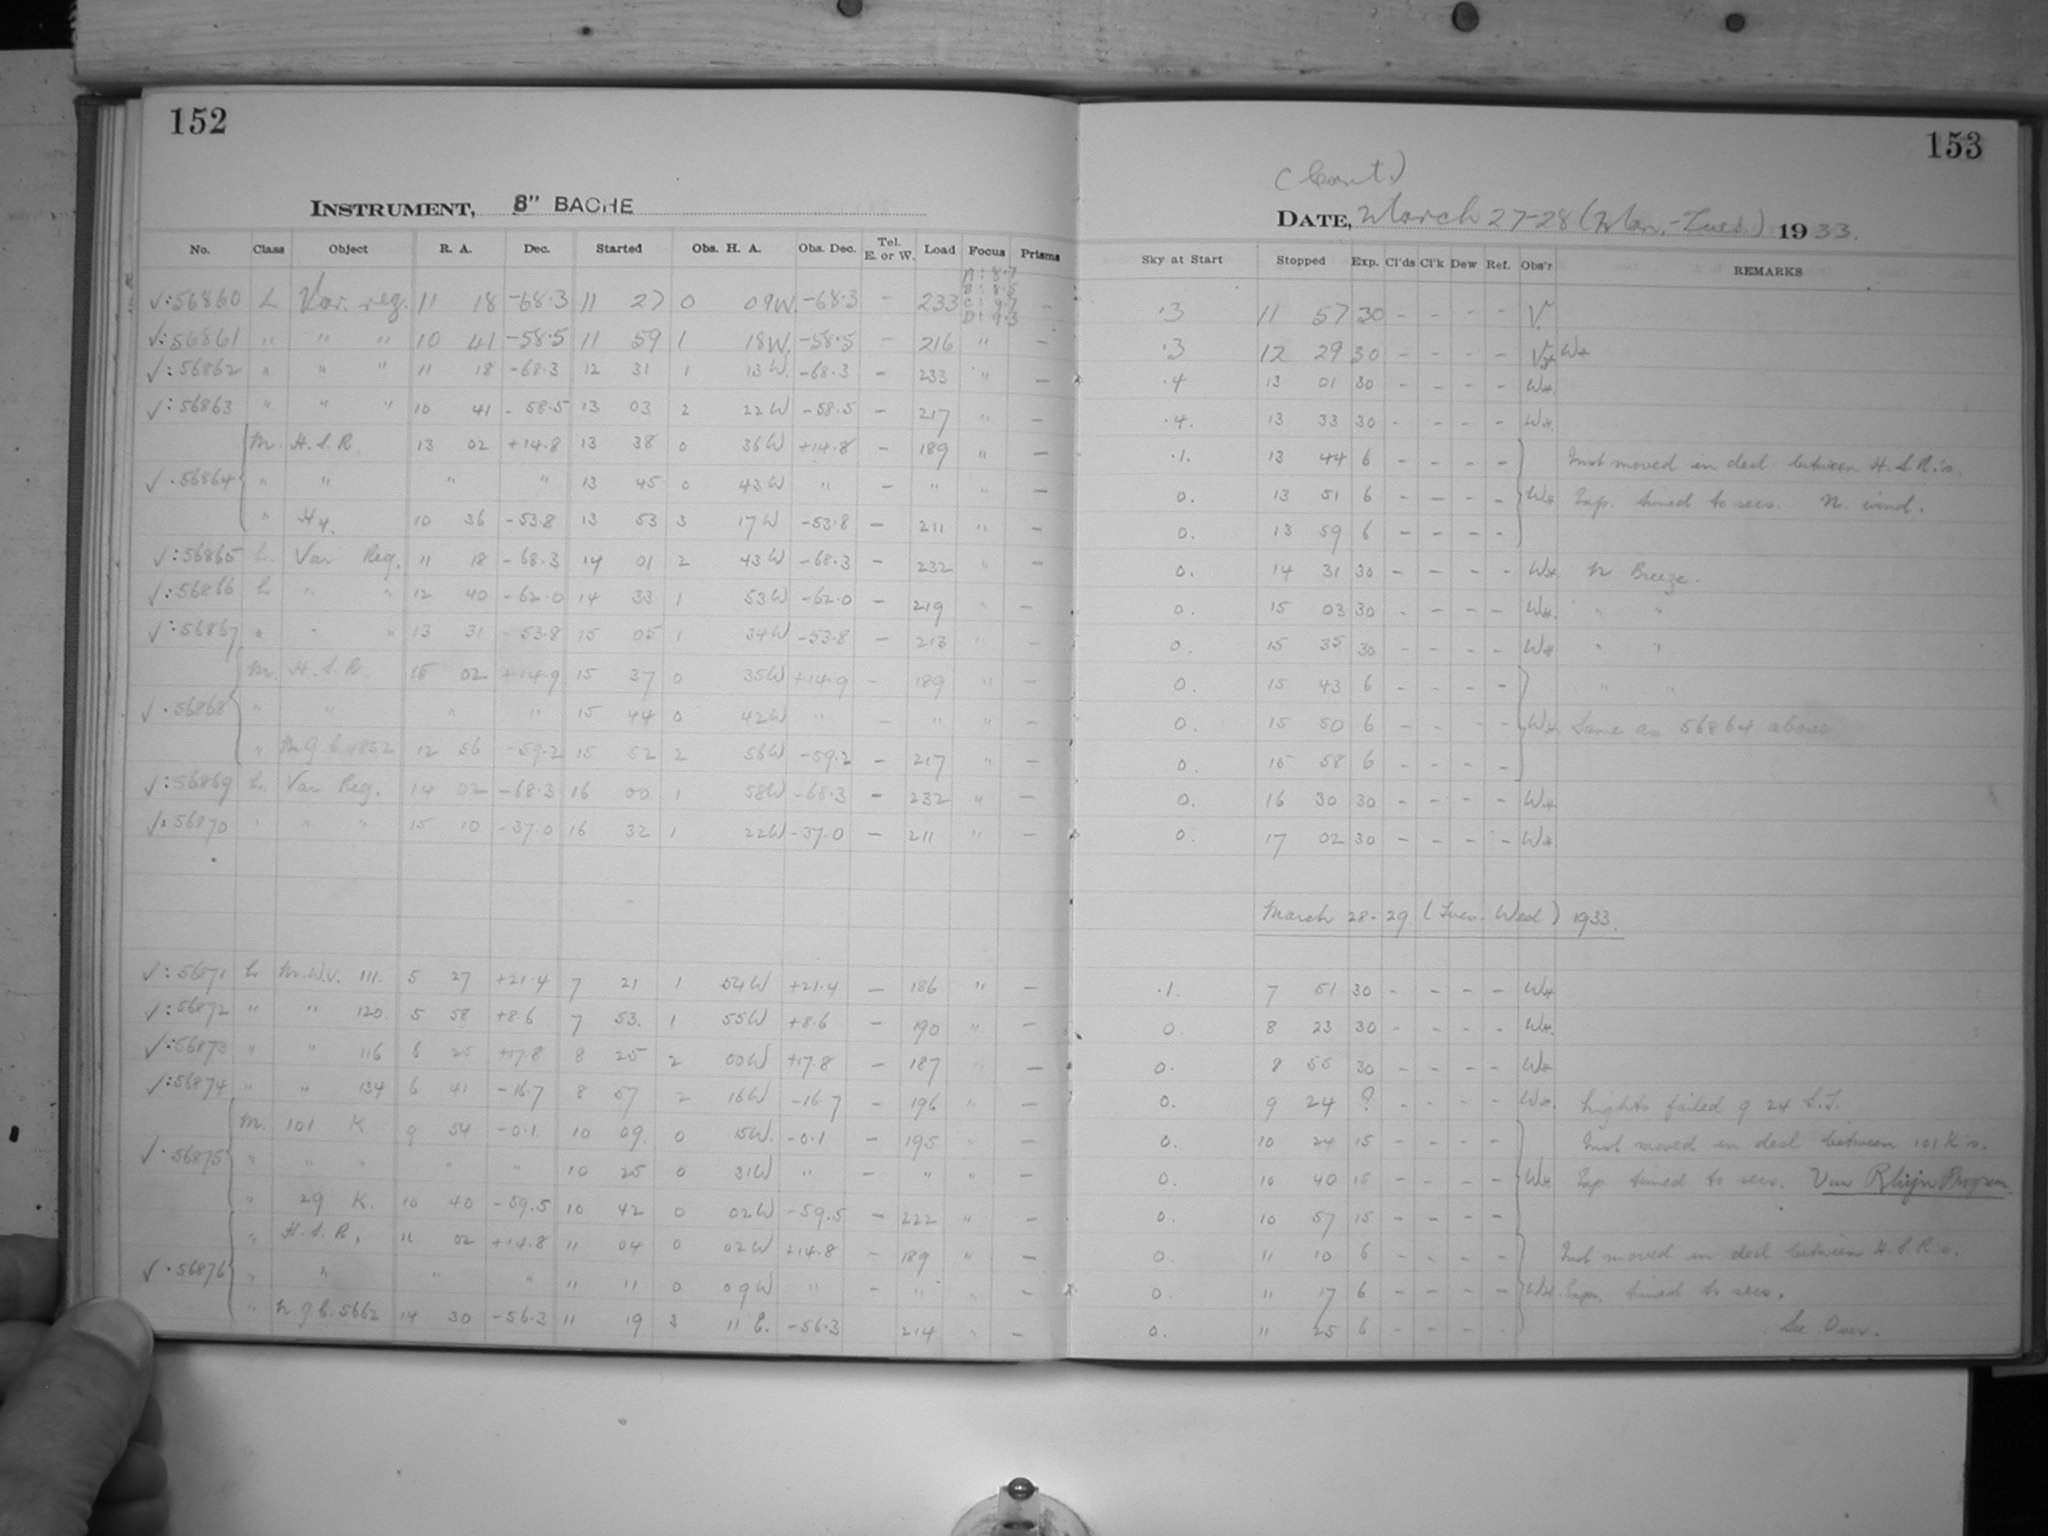 152
INSTRUMENT, 8" BACHE
No. Class Object R. A. Dec. Started Obs. H. A. Obs. Dec. Tel. E. or W. Load Focus Prisms
A: 8.7
B: 8.5
C: 9.7
D: 9.3
√:56860 L Var. reg. 11 18 -68.3 11 27 0 09W. -68.3 - 233 -
√:56861 " " " 10 41 -58.5 11 59 1 18W. -58.5 - 216 " -
√:56862 " " " 11 18 -68.3 12 31 1 13W. -68.3 - 233 " -
√:56863 " " " 10 41 -58.5 13 03 2 22W -58.5 - 217 " -
M. H.S.R. 13 02 +14.8 13 38 0 36W +14.8 - 189 " -
√.56864 " " " " 13 45 0 43W " - " " -
" 10 36 -53.8 13 53 3 17W -53.8 - 211 " -
√:56865 L. Var Reg. 11 18 -68.3 14 01 2 43W -68.3 - 232 " -
√:56866 L " " 12 40 -62.0 14 33 1 53W -62.0 - 219 " -
√:56867 " " " 13 31 -53.8 15 05 1 34W -53.8 - 213 " -
M. H.S.R. 15 02 +14.9 15 37 0 35W +14.9 - 189 " -
√.56868 " " " " 15 44 0 42W " - " " -
" 4852 12 56 -59.2 15 52 2 56W -59.2 - 217 " -
√:56869 L. Var Reg. 14 02 -68.3 16 00 1 58W -68.3 - 232 " -
√:56870 " " " 15 10 -37.0 16 32 1 22W -37.0 - 211 " -
√:56871 L M.W.V. 111. 5 27 +21.4 7 21 1 54W +21.4 - 186 " -
√:56872 " " 120. 5 58 +8.6 7 53. 1 55W +8.6 - 190 " -
√:56873 " " 116 6 25 +17.8 8 25 2 00W +17.8 - 187 " -
√:56874 " " 134 6 41 -16.7 8 57 2 16W -16.7 - 196 " -
M. 101 K 9 54 -0.1 10 09. 0 15W. -0.1 - 195 " -
√.56875 " " " " " 10 25 0 31W " - " " -
" 29 K. 10 40 -59.5 10 42 0 02W -59.5 - 222 " -
" H.S.R. 11 02 +14.8 11 04 0 02W +14.8 - 189 " -
√.56876 " " " " 11 11 0 09W " - " " -
" N.G.C. 5662 14 30 -56.3 11 19 3 11 E. -56.3 214 " -
153
(Cont.)
DATE, March 27-28 (Mon.-Tues.) 1933.
Sky at Start Stopped Exp. Cl'ds Cl'k Dew Ref. Obs'r REMARKS
.3 11 57 30 - - - - V.
.3 12 29 30 - - - -
.4 13 01 30 - - - - WH.
.4. 13 33 30 - - - - WH.
.1. 13 44 6 - - - - Inst moved in decl between H.S.R.'s.
0. 13 51 6 - - - - WH Exp. timed to secs. N. wind.
0. 13 59 6 - - - -
0. 14 31 30 - - - - WH. N Breeze.
0. 15 03 30 - - - - WH. " "
0. 15 35 30 - - - - WH " "
0. 15 43 6 - - - - " "
0. 15 50 6 - - - - WH. Same as 56864 above
0. 15 58 6 - - - -
0. 16 30 30 - - - - WH.
0. 17 02 30 - - - - WH.
March 28-29. (Tues. Wed) 1933.
.1. 7 51 30 - - - - WH
0. 8 23 30 - - - - WH.
0. 8 55 30 - - - - WH
0. 9 24 ? - - - - WH. Lights failed 9 24 S.T.
0. 10 24 15 - - - - Inst moved in decl between 101 K's.
0. 10 40 15 - - - - WH Exp timed to secs. Van Rhijn Program
0. 10 57 15 - - - -
0. 11 10 6 - - - - Inst moved in decl between H.S.R.'s.
0. 11 17 6 - - - - WH. Exps. timed to secs.
0. 11 25 6 - - - - See Over.